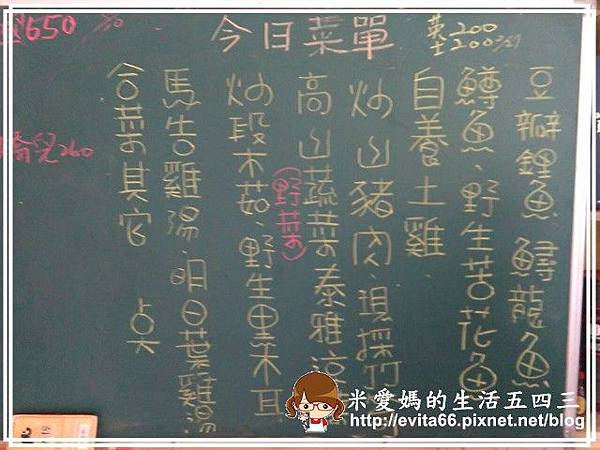 今日菜單
650
英200
士200
豆瓣鯉魚 鱘龍魚
鱒魚、野生苦花魚
自養土雞
炒山豬肉、現採竹
高山蔬菜泰雅涼
(野菜)
炒段木菇、野生黑木耳
馬告雞湯、明日葉雞湯
合菜其它 点
260
米愛媽的生活五四三
http://evita66.pixnet.net/blog